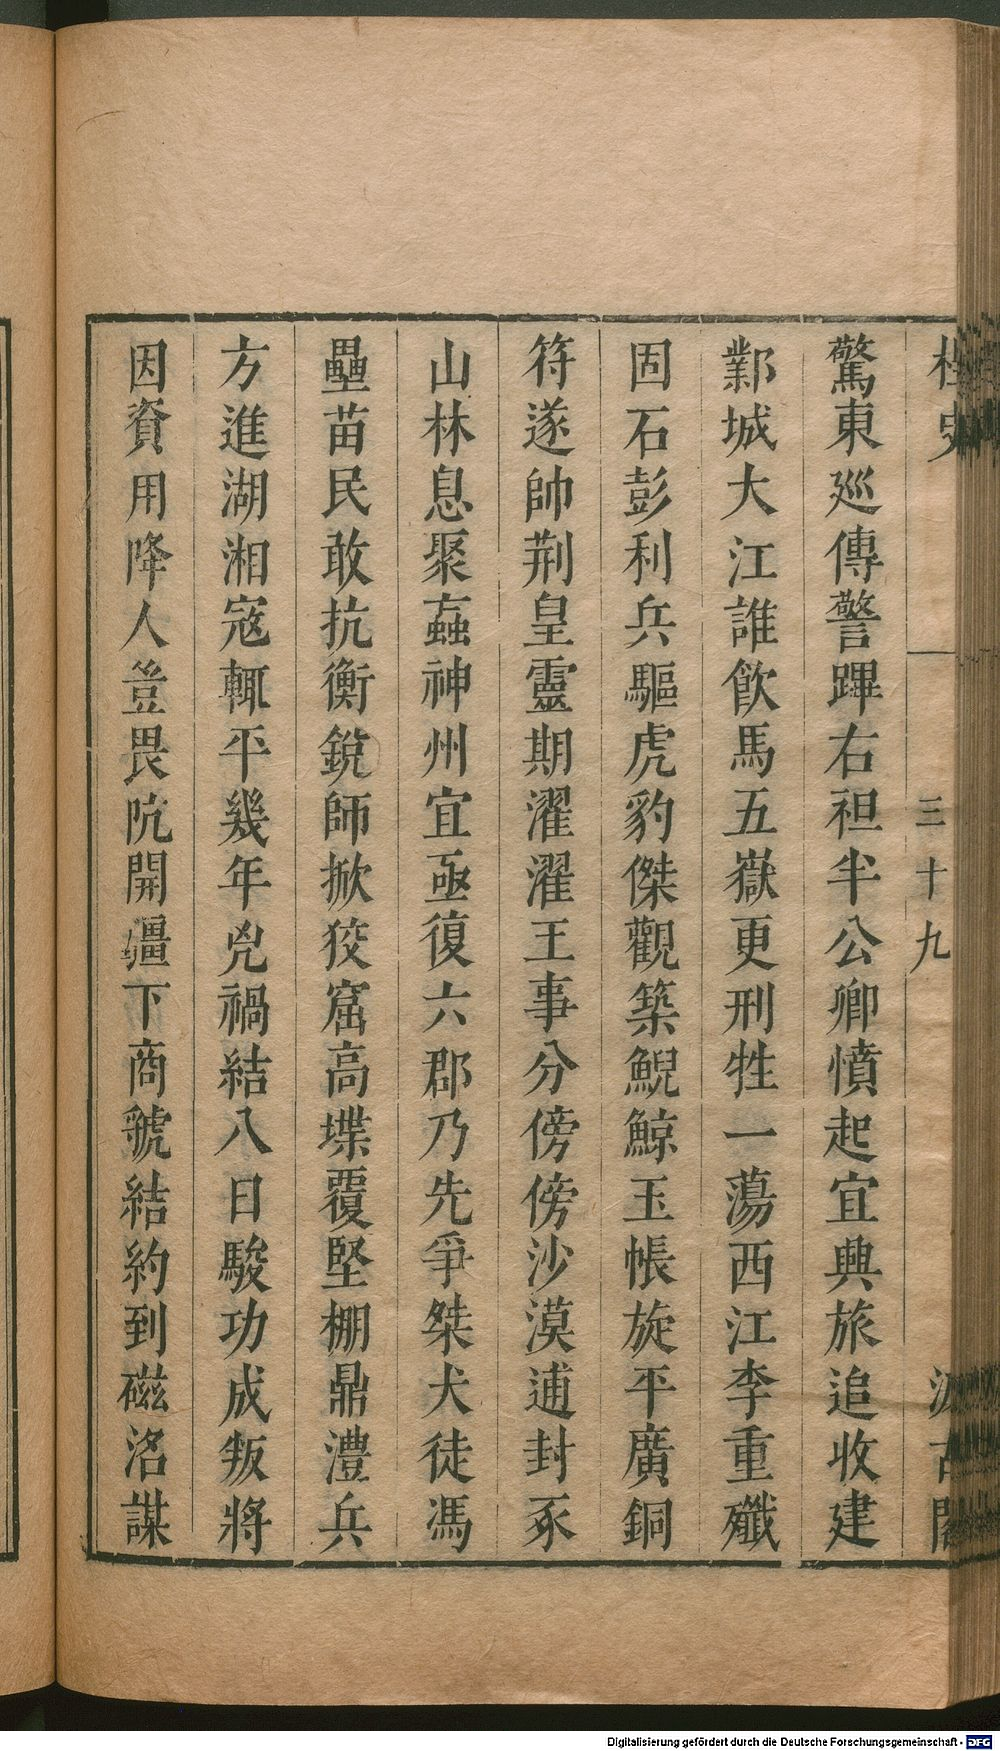 桯史 三十九 汲古閣
驚東廵傳警蹕右袒半公卿憤起宜興旅追收建
鄴城大江誰飲馬五嶽更刑牲一蕩西江李重殲
固石彭利兵驅虎豹傑觀築鯢鯨玉帳旋平廣銅
符遂帥荆皇靈期濯濯王事分傍傍沙漠逋封豕
山林息聚蝱神州宜亟復六郡乃先爭桀犬徒馮
壘苗民敢抗衡銳師掀狡窟高堞覆堅棚鼎澧兵
方進湖湘寇輒平幾年兇禍結八日駿功成叛將
因資用降人豈畏阬開疆下商虢結約到磁洺謀
Digitalisierung gefördert durch die Deutsche Forschungsgemeinschaft - DFG